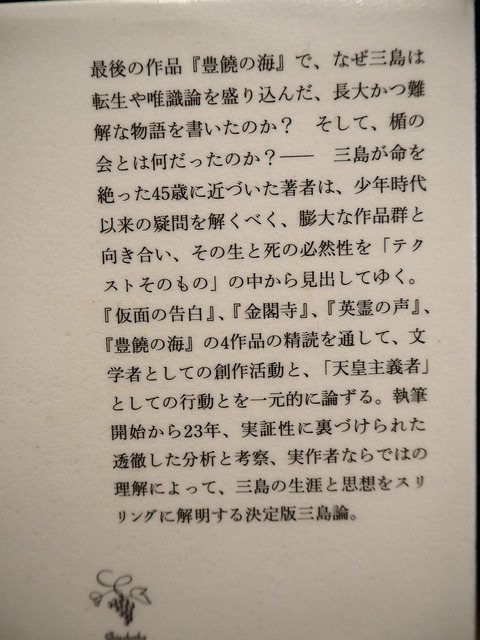 最後の作品『豊饒の海』で、なぜ三島は
転生や唯識論を盛り込んだ、長大かつ難
解な物語を書いたのか？　そして、楯の
会とは何だったのか？――　三島が命を
絶った45歳に近づいた著者は、少年時代
以来の疑問を解くべく、膨大な作品群と
向き合い、その生と死の必然性を「テク
ストそのもの」の中から見出してゆく。
『仮面の告白』、『金閣寺』、『英霊の声』、
『豊饒の海』の4作品の精読を通して、文
学者としての創作活動と、「天皇主義者」
としての行動とを一元的に論ずる。執筆
開始から23年、実証性に裏づけられた
透徹した分析と考察、実作者ならではの
理解によって、三島の生涯と思想をスリ
リングに解明する決定版三島論。